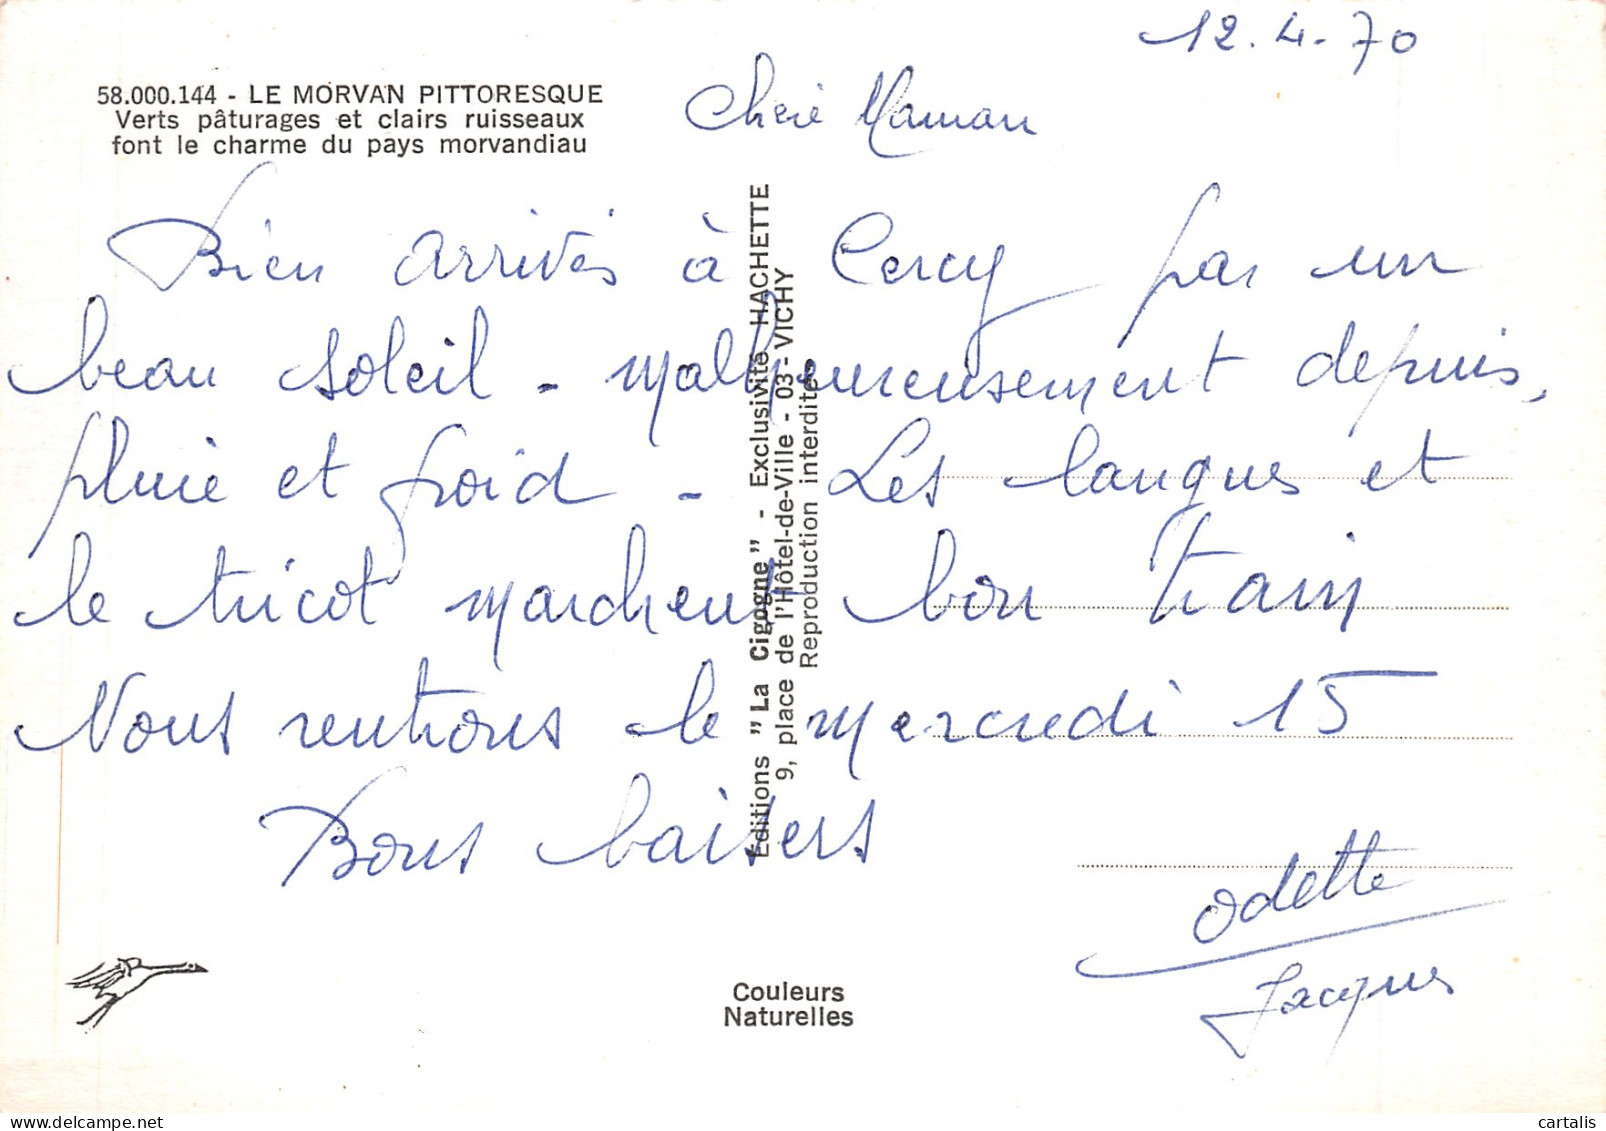 12.4.70
58.000.144 - LE MORVAN PITTORESQUE
Verts pâturages et clairs ruisseaux
font le charme du pays morvandiau
Chère Maman
Bien arrivés à Cercy par un
beau soleil - malheureusement depuis,
pluie et froid - Les langues et
le tricot marchent bon train
Nous rentrons le mercredi 15
Bons baisers
Odette
Jacques
Éditions "La Cigogne" - Exclusivité HACHETTE
9, place de l'Hôtel-de-Ville - 03 - VICHY
Reproduction interdite
Couleurs
Naturelles
cartalis